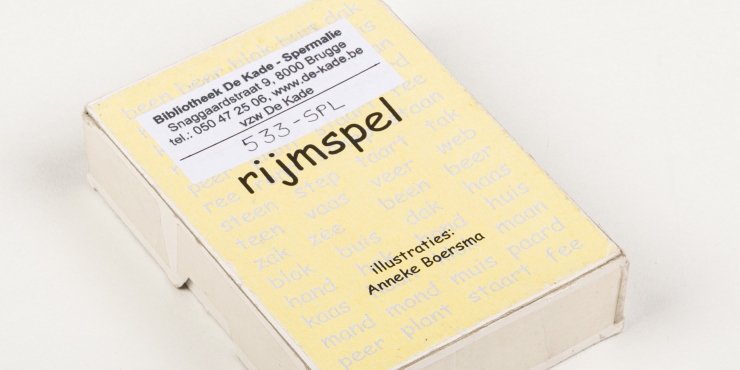 Bibliotheek De Kade - Spermalie
Snaggaardstraat 9, 8000 Brugge
tel.: 050 47 25 06, www.de-kade.be
vzw De Kade
533-SPL
rijmspel
illustraties:
Anneke Boersma
been beer blok buis dak
peer
ree
steen step taart tak
teen vaas veer web
zak zee been beer
blok buis dak haas
hand huis
kaas maan
mand mond muis paard
peer plant staart fee